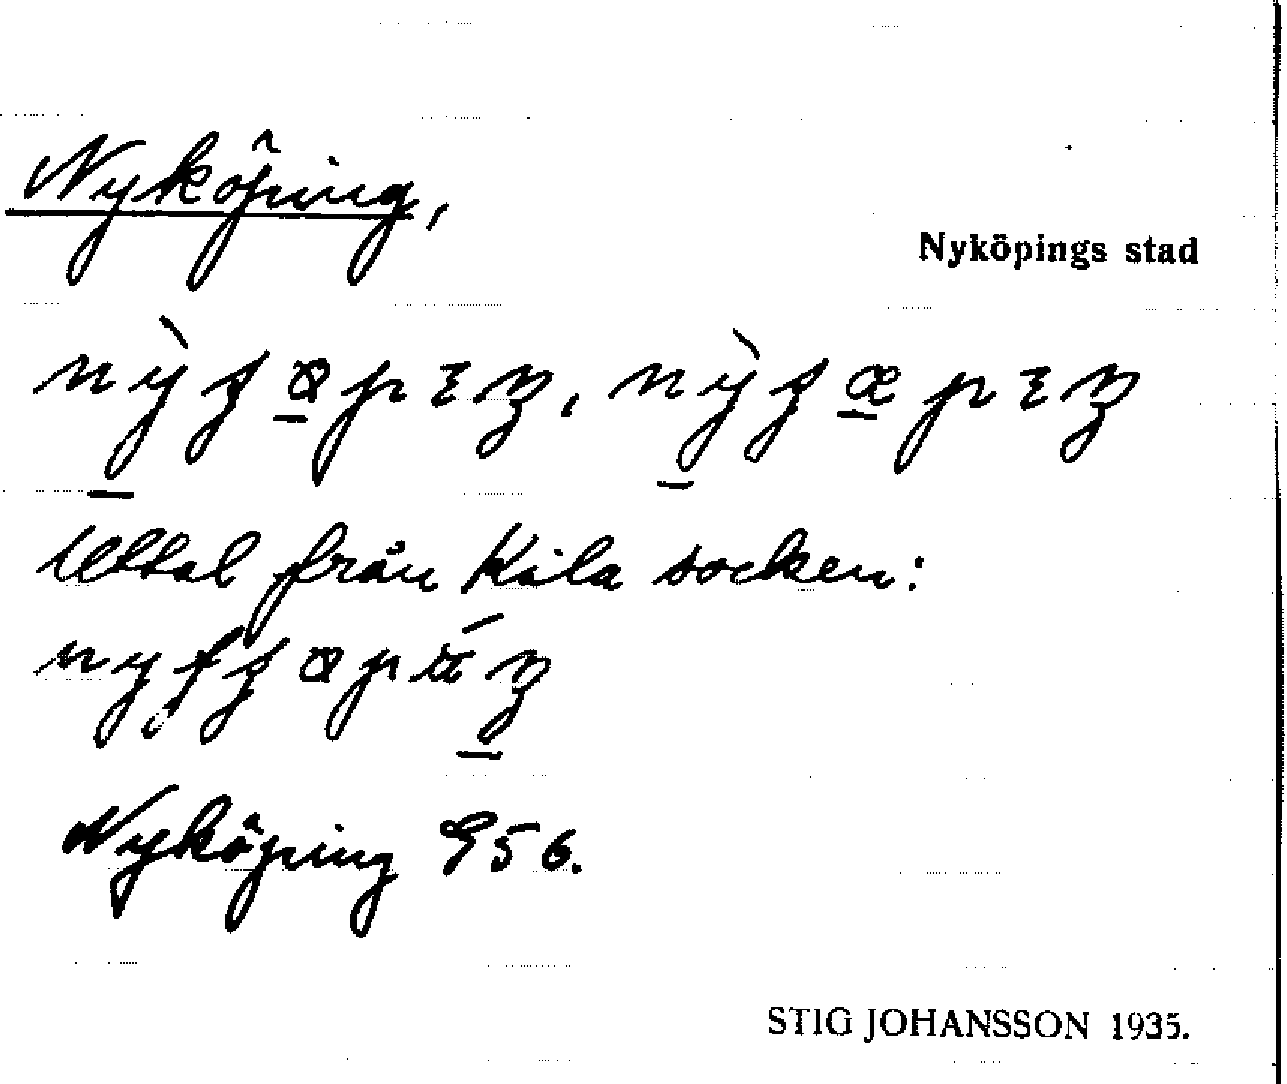 Nyköping,
Nyköpings stad
Uttal från Kila socken:
Nyköping 956.
STIG JOHANSSON 1935.